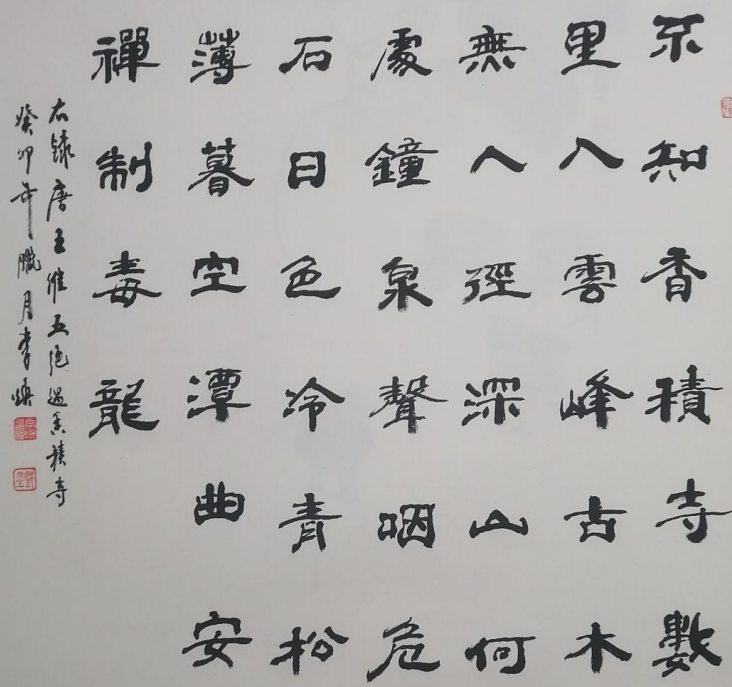 不知香積寺數
里入雲峰古木
無人徑深山何
處鐘泉聲咽危
石日色冷青松
薄暮空潭曲安
禪制毒龍
右錄唐王維五絕過香積寺
癸卯年臘月李